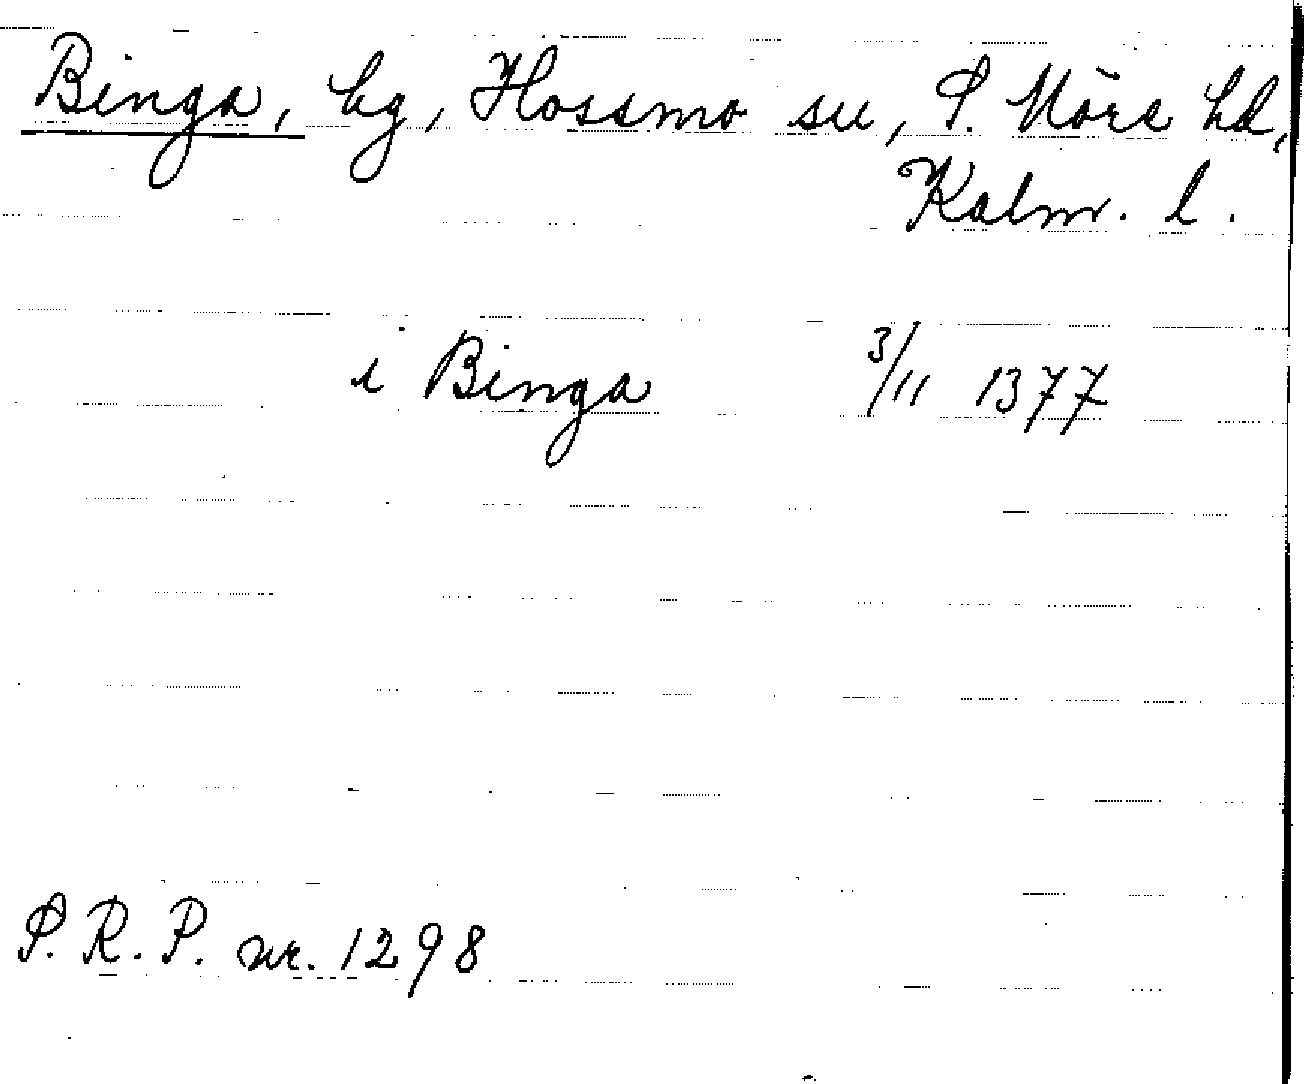 Binga, by, Hossmo sn, S. Möre hd,
Kalm. l.
i Binga 3/11 1377
S. R. P. nr. 1298